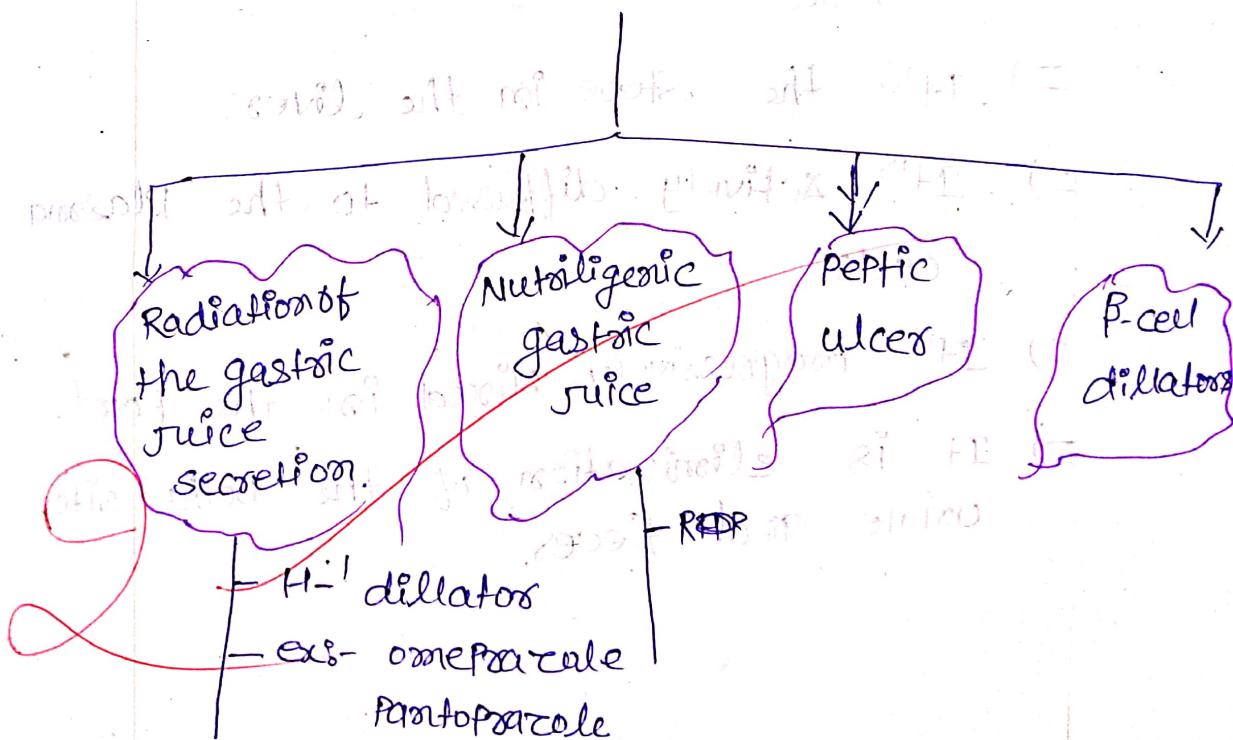 Radiation of
the gastric
juice
secretion.
Nutriligenic
gastric
juice
Peptic
ulcer
β-cell
dillators
H-1 dillator
ex:- omeprazale
Pantoprazole